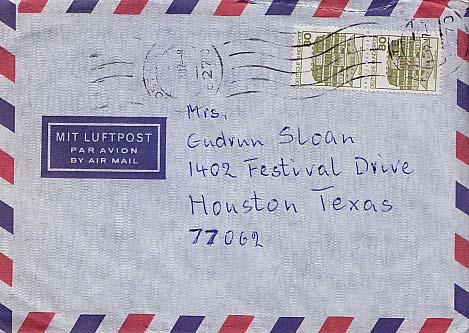 80
80
Mrs.
Gudrun Sloan
1402 Festival Drive
Houston Texas
77062
MIT LUFTPOST
PAR AVION
BY AIR MAIL